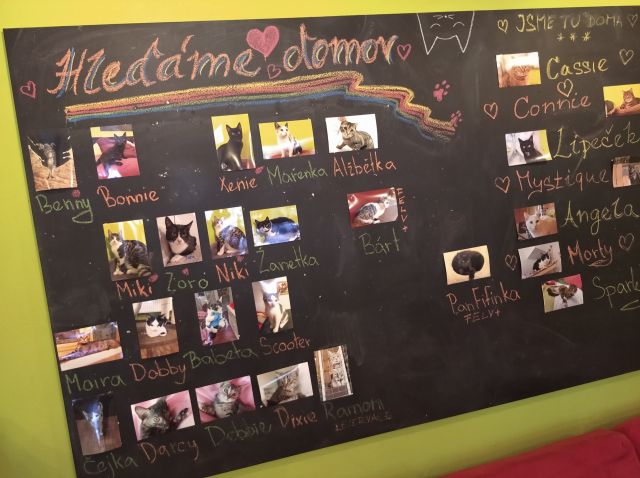 Hledáme domov
Benny Bonnie Xenie Mařenka Alžbětka
Miki Zoro Niki Žanetka Bárt FELV+
Maira Dobby Babeta Scooter
Čejka Darcy Debbie Dixie Ramona
JSME TU DOMA
***
Cassie
Connie
Lipeček
Mystique
Angela
Morty
Pantifinka
FELV+
Spark